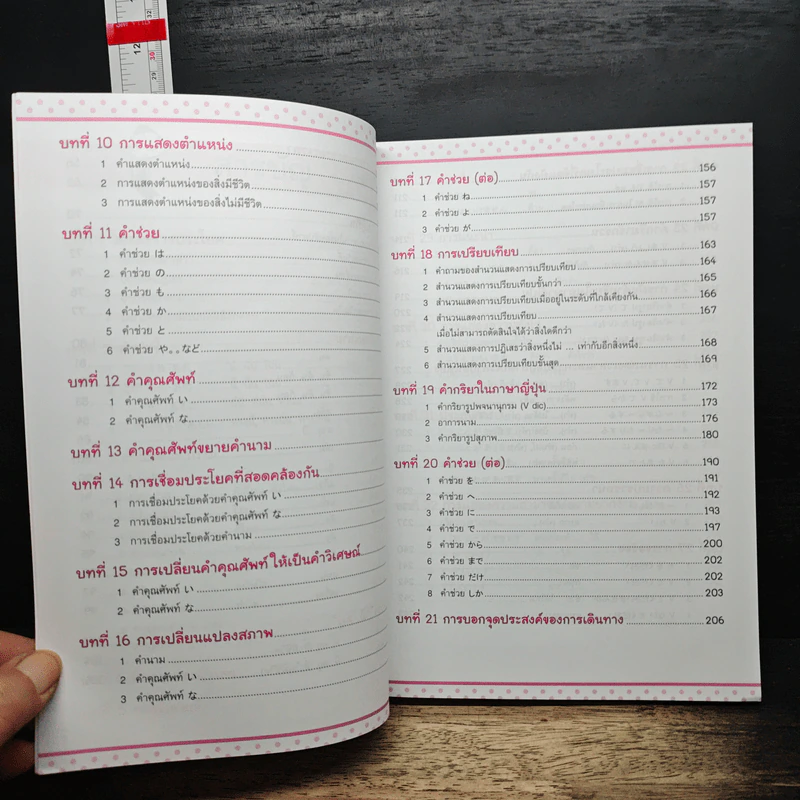 บทที่ 10 การแสดงตำแหน่ง
1 คำแสดงตำแหน่ง
2 การแสดงตำแหน่งของสิ่งมีชีวิต
3 การแสดงตำแหน่งของสิ่งไม่มีชีวิต
บทที่ 11 คำช่วย
1 คำช่วย は
2 คำช่วย の
3 คำช่วย も
4 คำช่วย か
5 คำช่วย と
6 คำช่วย や。。など
บทที่ 12 คำคุณศัพท์
1 คำคุณศัพท์ い
2 คำคุณศัพท์ な
บทที่ 13 คำคุณศัพท์ขยายคำนาม
บทที่ 14 การเชื่อมประโยคที่สอดคล้องกัน
1 การเชื่อมประโยคด้วยคำคุณศัพท์ い
2 การเชื่อมประโยคด้วยคำคุณศัพท์ な
3 การเชื่อมประโยคด้วยคำนาม
บทที่ 15 การเปลี่ยนคำคุณศัพท์ให้เป็นคำวิเศษณ์
1 คำคุณศัพท์ い
2 คำคุณศัพท์ な
บทที่ 16 การเปลี่ยนแปลงสภาพ
1 คำนาม
2 คำคุณศัพท์ い
3 คำคุณศัพท์ な
บทที่ 17 คำช่วย (ต่อ) 156
1 คำช่วย ね 157
2 คำช่วย よ 157
3 คำช่วย が 157
บทที่ 18 การเปรียบเทียบ 163
1 คำถามของสำนวนแสดงการเปรียบเทียบ 164
2 สำนวนแสดงการเปรียบเทียบขั้นกว่า 165
3 สำนวนแสดงการเปรียบเทียบเมื่ออยู่ในระดับที่ใกล้เคียงกัน 166
4 สำนวนแสดงการเปรียบเทียบ 167
เมื่อไม่สามารถตัดสินใจได้ว่าสิ่งใดดีกว่า
5 สำนวนแสดงการปฏิเสธว่าสิ่งหนึ่งไม่ ... เท่ากับอีกสิ่งหนึ่ง 168
6 สำนวนแสดงการเปรียบเทียบขั้นสุด 169
บทที่ 19 คำกริยาในภาษาญี่ปุ่น 172
1 คำกริยารูปพจนานุกรม (V dic) 173
2 อาการนาม 176
3 คำกริยารูปสุภาพ 180
บทที่ 20 คำช่วย (ต่อ) 190
1 คำช่วย を 191
2 คำช่วย へ 192
3 คำช่วย に 193
4 คำช่วย で 197
5 คำช่วย から 200
6 คำช่วย まで 202
7 คำช่วย だけ 202
8 คำช่วย しか 203
บทที่ 21 การบอกจุดประสงค์ของการเดินทาง 206